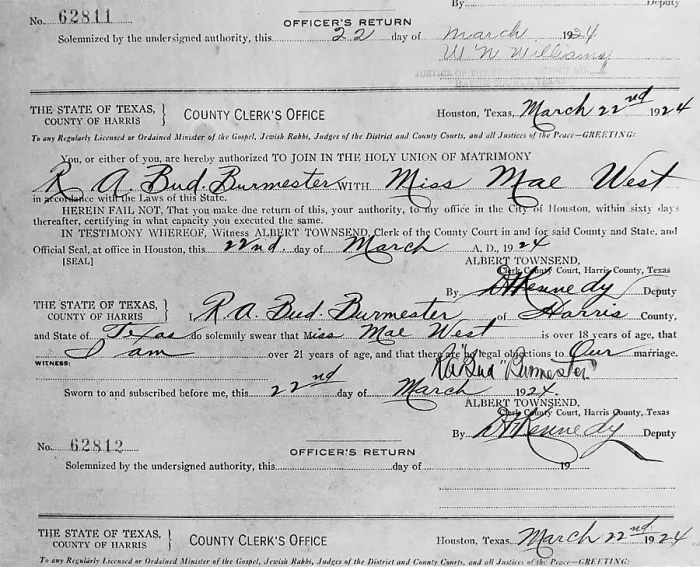 By Deputy
No. 62811
OFFICER'S RETURN
Solemnized by the undersigned authority, this 22 day of March 1924
W N Williams
JUSTICE OF THE
THE STATE OF TEXAS, COUNTY OF HARRIS } COUNTY CLERK'S OFFICE Houston, Texas, March 22nd 1924
To any Regularly Licensed or Ordained Minister of the Gospel, Jewish Rabbi, Judges of the District and County Courts, and all Justices of the Peace—GREETING:
You, or either of you, are hereby authorized TO JOIN IN THE HOLY UNION OF MATRIMONY
R. A. Bud. Burmester WITH Miss Mae West
in accordance with the Laws of this State.
HEREIN FAIL NOT, That you make due return of this, your authority, to my office in the City of Houston, within sixty days
thereafter, certifying in what capacity you executed the same.
IN TESTIMONY WHEREOF, Witness ALBERT TOWNSEND, Clerk of the County Court in and for said County and State, and
Official Seal, at office in Houston, this 22nd. day of March A. D., 1924
[SEAL] ALBERT TOWNSEND,
Clerk County Court, Harris County, Texas
By D Kennedy Deputy
THE STATE OF TEXAS, COUNTY OF HARRIS } I, R. A. Bud. Burmester of Harris County,
and State of Texas do solemnly swear that Miss Mae West is over 18 years of age, that
I am over 21 years of age, and that there are no legal objections to Our marriage.
WITNESS: R.A. "Bud" Burmester
Sworn to and subscribed before me, this 22nd day of March 1924.
ALBERT TOWNSEND,
Clerk County Court, Harris County, Texas
By D Kennedy Deputy
No. 62812
OFFICER'S RETURN
Solemnized by the undersigned authority, this day of 19
THE STATE OF TEXAS, COUNTY OF HARRIS } COUNTY CLERK'S OFFICE Houston, Texas, March 22nd 1924
To any Regularly Licensed or Ordained Minister of the Gospel, Jewish Rabbi, Judges of the District and County Courts, and all Justices of the Peace—GREETING: